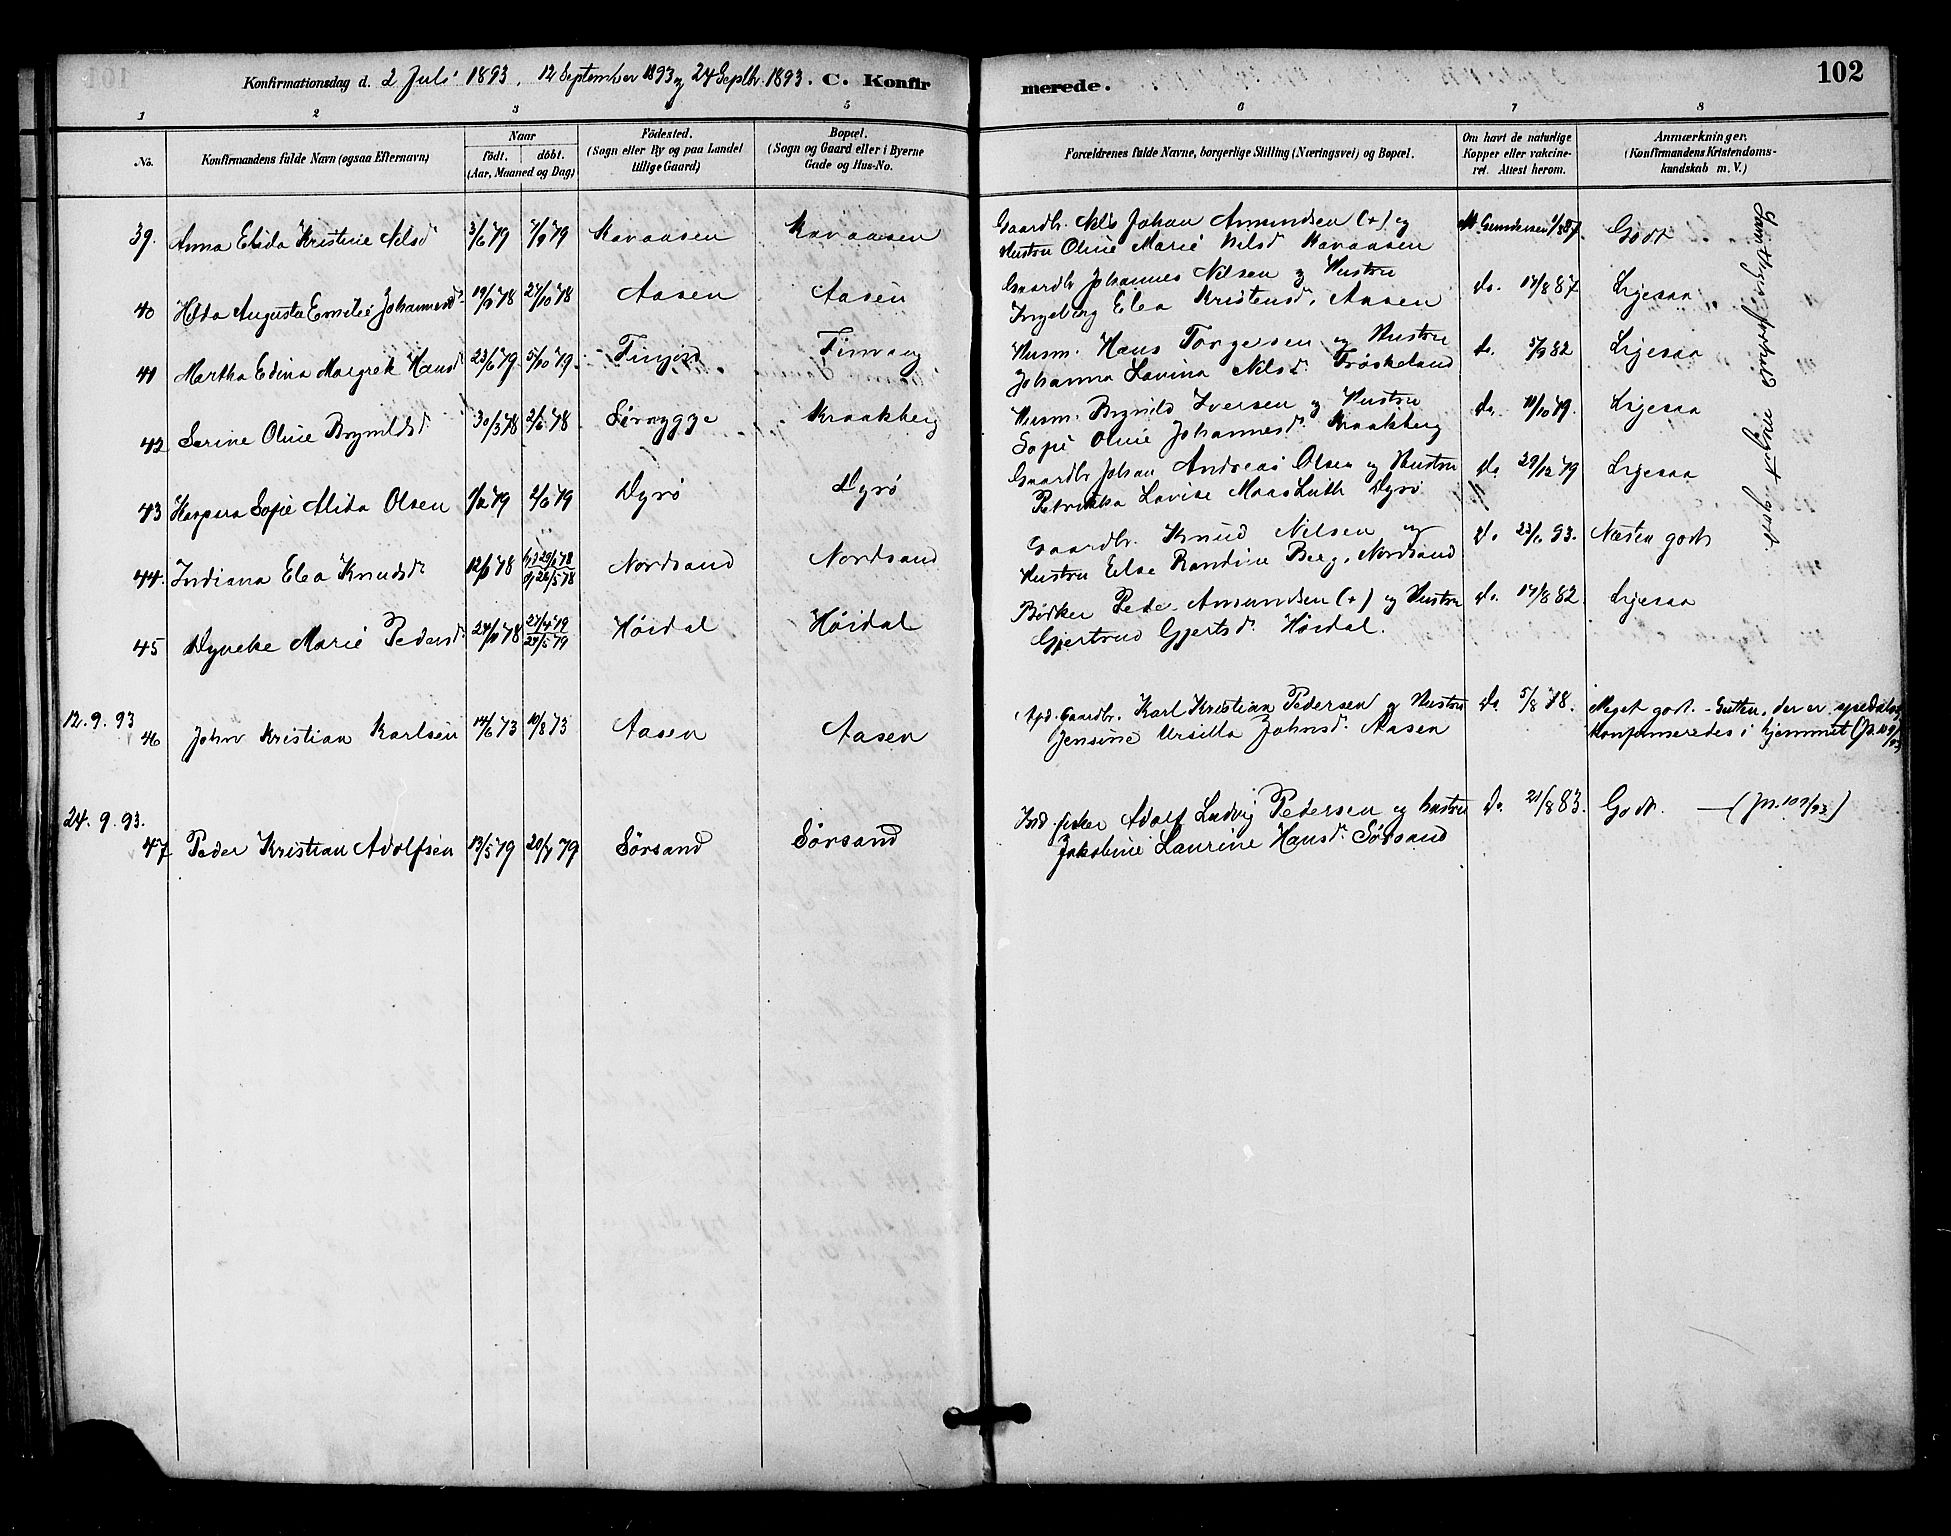 Konfirmationsdag d. 2 Juli 1893. 12 September 1893 og 24 Septbr. 1893. C. Konfirmerede. 102
1 2 3 5 6 7 8
No. Konfirmandens fulde Navn (ogsaa Efternavn) Naar födt. döbt. (Aar, Maaned og Dag) Födested. (Sogn eller By og paa Landet tillige Gaard) Bopæl. (Sogn og Gaard eller i Byerne Gade og Hus-No. Forældrenes fulde Navne, borgerlige Stilling (Næringsvei) og Bopæl. Om havt de naturlige Kopper eller vakcineret. Attest herom. Anmærkninger. (Konfirmandens Kristendomskundskab m. V.)
39. Anna Elida Kristine Nilsd. 3/6 79 7/9 79 Kavaasen Kavaasen Gaardbr. Nils Johan Amundsen (+) og
Hustru Oline Marie Nilsd. Kavaasen M. Gundersen 1/8 87. Godt
40 Hilda Augusta Emilie Johannesd. 19/9 78 27/10 78 Aasen Aasen Gaardbr. Johannes Nilsen og Hustru
Ingeborg Elea Kristensd. Aasen do. 17/8 87 Ligesaa
41 Martha Edina Margrete Hansd. 23/6 79. 5/10 79. Husm. Hans Torgersen og Hustru
Johanna Lavina Nilsd. Tröskeland do. 5/9 82 Ligesaa
42 Serine Oline Brynildsd. 30/3 78 2/6 78 Kraakberg Husm. Brynild Iversen og Hustru
Sofie Oline Johannesd. Kraakberg do. 11/10 79. Ligesaa
43 Kaspera Sofie Alida Olsen 1/2 79 2/6 79 Dyrö Dyrö Gaardbr. Johan Andreas Olsen og Hustru
Petrikka Lovise Maas Luth Dyrö do 29/12 79 Ligesaa
44. Indiana Elea Knudsd. 78 Nordsand Nordsand Gaardbr. Knud Nilsen og
Hustru Else Randine Berg, Nordsand do 93. Næsten godt
45 Dyneke Marie Pedersd. 78 27/4 79 27/5 79 Höidal Höidal Bödker Peder Amundsen (+) og Hustru
Gjertrud Gjertsd. Höidal. do. 17/8 82. Ligesaa
Samtlige
12. 9. 93
46 John Kristian Karlsen 14/6 73 10/8 73 Aasen Aasen Gaardbr. Karl Kristian Pedersen og Hustru
Jensine Ursilla Johnsd. Aasen do 5/8 78. Meget godt. - Gutten, der er spedalsk,
konfirmeredes i hjemmet
24. 9. 93.
47 Peder Kristian Adolfsen 13/5 79 20/7 79 Sörsand Sörsand Ind. fisker Adolf Ludvig Pedersen og hustru
Jakobine Laurine Hansd. Sörsand do 21/8 83. Godt. — (Jr. 107/93)